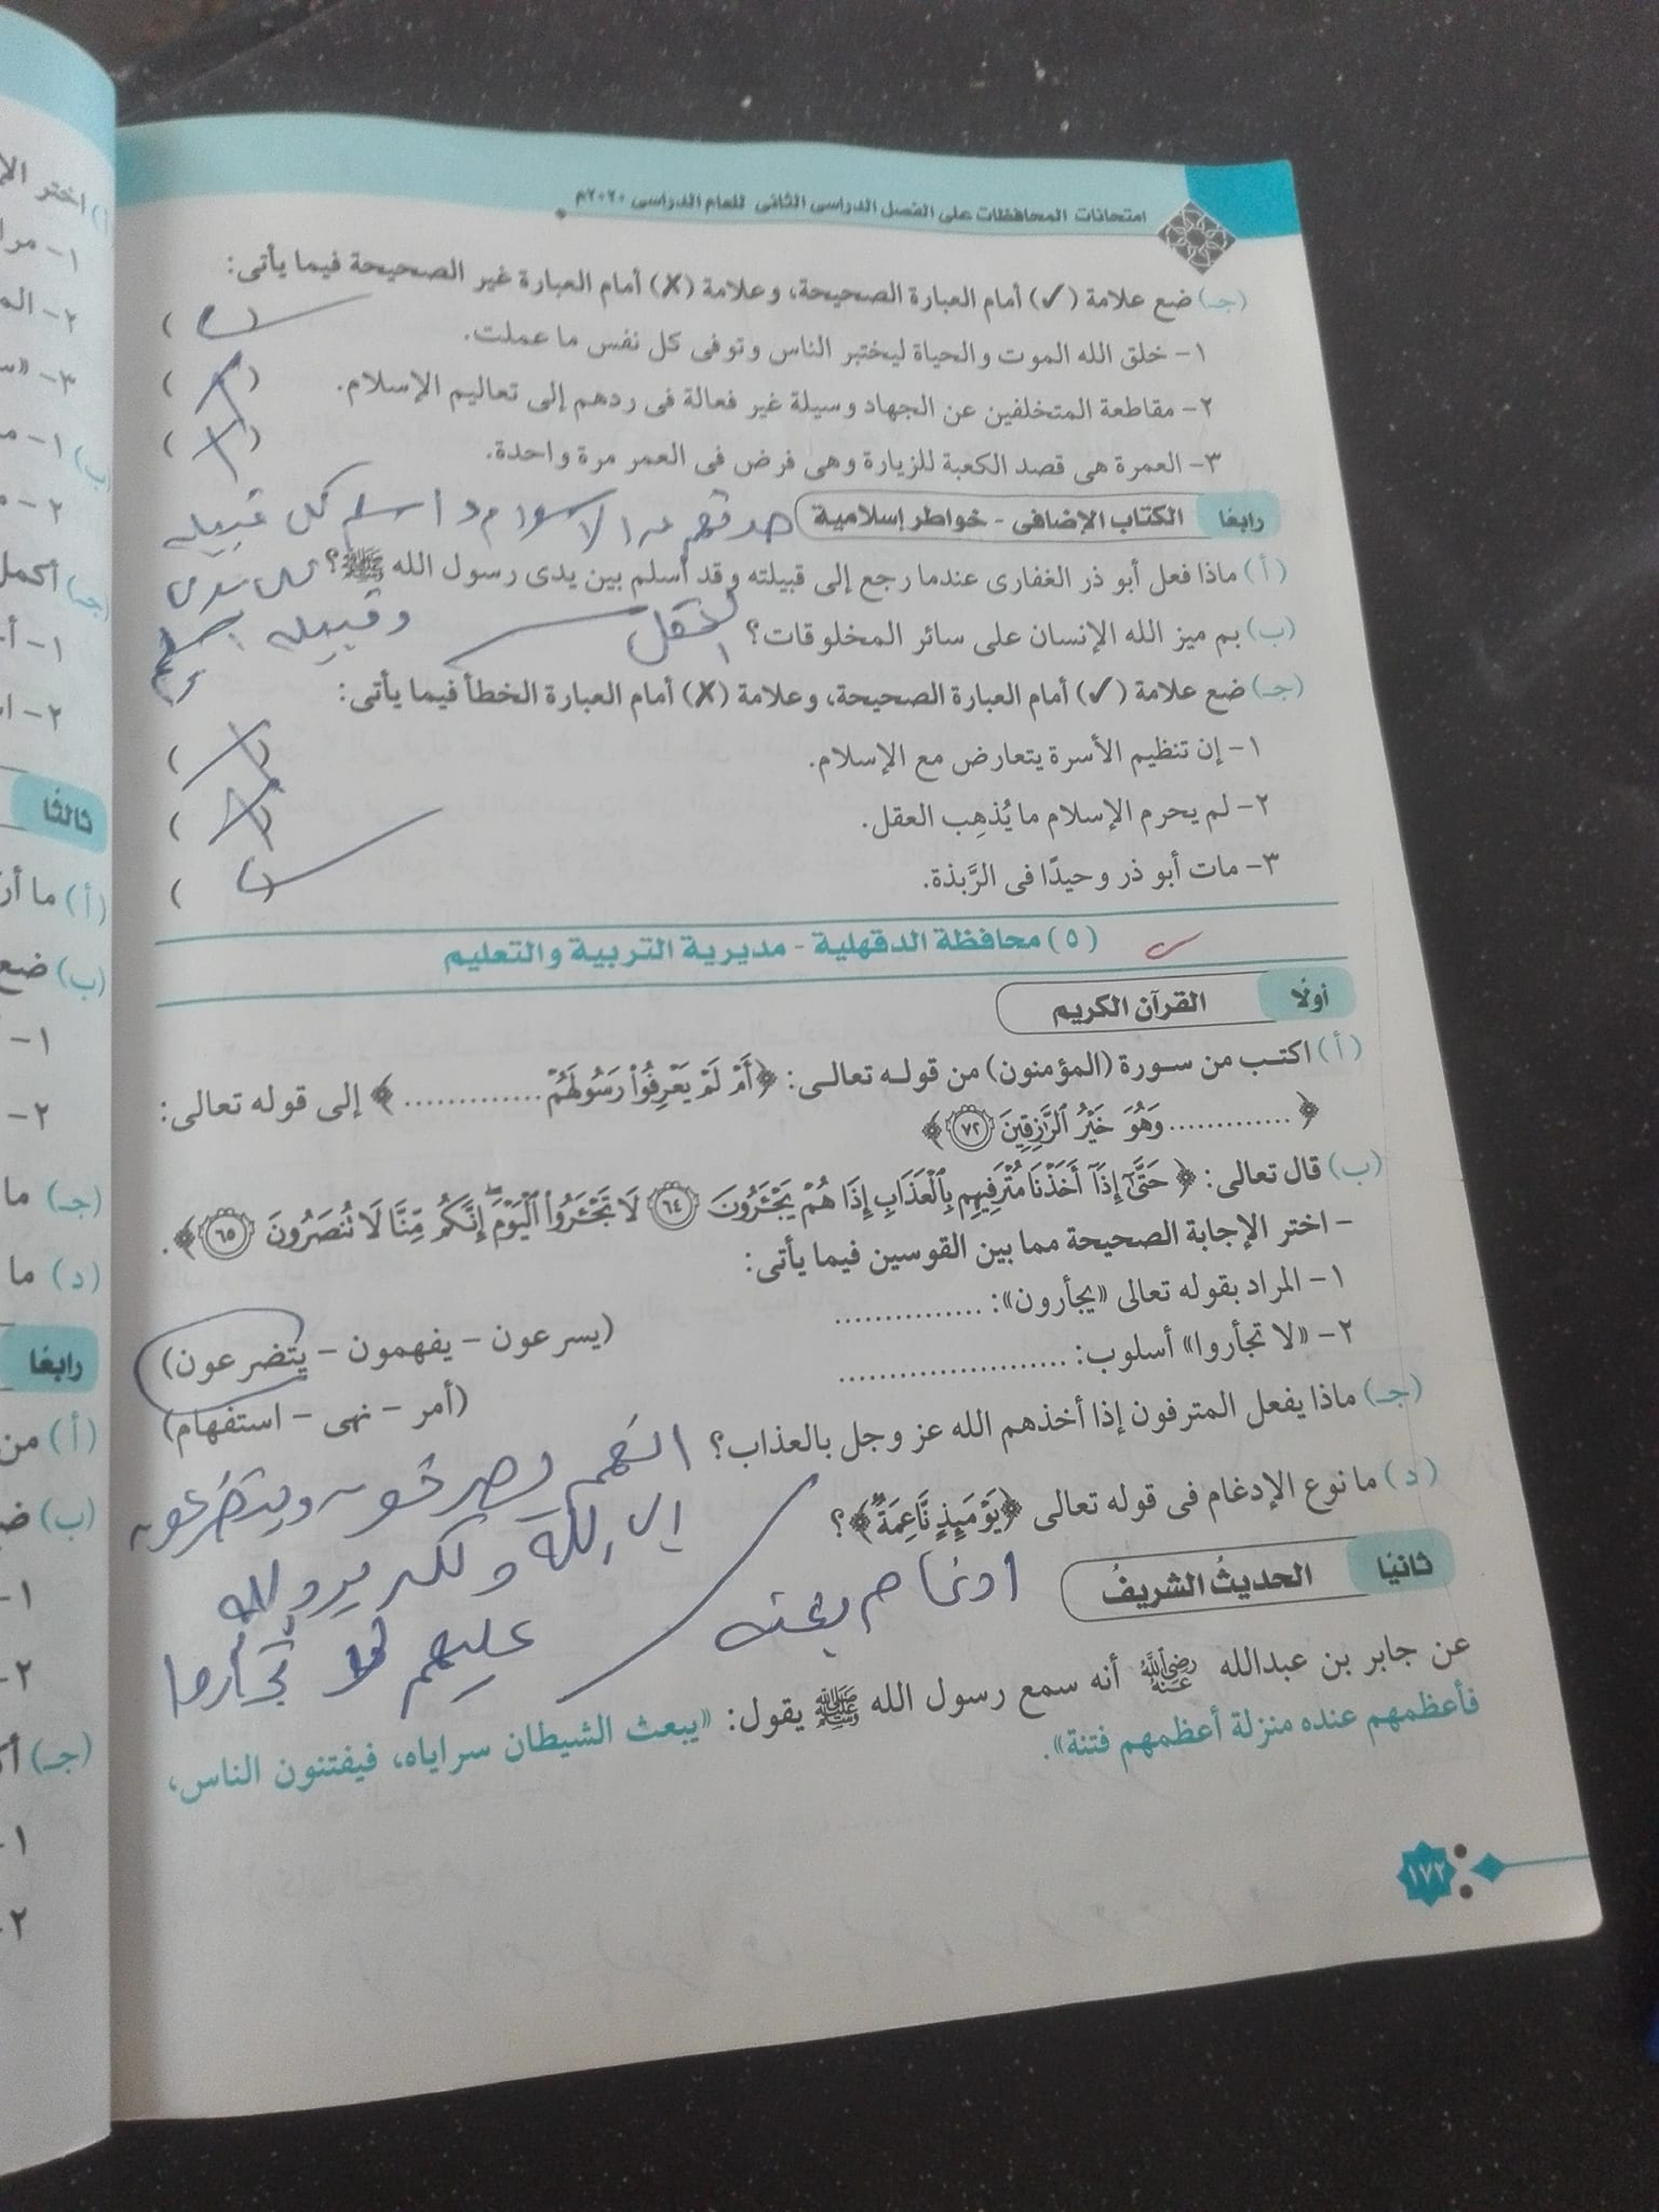 امتحانات المحافظات على الفصل الدراسى الثانى للعام الدراسى ٢٠٢٠م
(جـ) ضع علامة (✓) أمام العبارة الصحيحة، وعلامة (✗) أمام العبارة غير الصحيحة فيما يأتى:
١- خلق الله الموت والحياة ليختبر الناس وتوفى كل نفس ما عملت. ( )
٢- مقاطعة المتخلفين عن الجهاد وسيلة غير فعالة فى ردهم إلى تعاليم الإسلام. ( )
٣- العمرة هى قصد الكعبة للزيارة وهى فرض فى العمر مرة واحدة. ( )
رابعًا الكتاب الإضافى - خواطر إسلامية
(أ) ماذا فعل أبو ذر الغفارى عندما رجع إلى قبيلته وقد أسلم بين يدى رسول الله ﷺ؟
(ب) بم ميز الله الإنسان على سائر المخلوقات؟ العقل
(جـ) ضع علامة (✓) أمام العبارة الصحيحة، وعلامة (✗) أمام العبارة الخطأ فيما يأتى:
١- إن تنظيم الأسرة يتعارض مع الإسلام. ( )
٢- لم يحرم الإسلام ما يُذهِب العقل. ( )
٣- مات أبو ذر وحيدًا فى الرَّبذة. ( )
(٥) محافظة الدقهلية - مديرية التربية والتعليم
أولًا القرآن الكريم
(أ) اكتب من سورة (المؤمنون) من قوله تعالى: ﴿أَمْ لَمْ يَعْرِفُوا۟ رَسُولَهُمْ.............﴾ إلى قوله تعالى:
﴿.............وَهُوَ خَيْرُ ٱلرَّٰزِقِينَ ٧٢﴾
(ب) قال تعالى: ﴿حَتَّىٰٓ إِذَآ أَخَذْنَا مُتْرَفِيهِم بِٱلْعَذَابِ إِذَا هُمْ يَجْـَٔرُونَ ٦٤ لَا تَجْـَٔرُوا۟ ٱلْيَوْمَ ۖ إِنَّكُم مِّنَّا لَا تُنصَرُونَ ٦٥﴾.
- اختر الإجابة الصحيحة مما بين القوسين فيما يأتى:
١- المراد بقوله تعالى «يجأرون»: .............. (يسرعون - يفهمون - يتضرعون)
٢- «لا تجأروا» أسلوب: ...................... (أمر - نهى - استفهام)
(جـ) ماذا يفعل المترفون إذا أخذهم الله عز وجل بالعذاب؟ انهم يصرخون ويتضرعون
الى الله ولكن يرد الله
عليهم لا تجأروا
(د) ما نوع الإدغام فى قوله تعالى ﴿يَوْمَئِذٍ نَّاعِمَةٌ﴾؟
ادغام بغنه
ثانيًا الحديثُ الشريفُ
عن جابر بن عبدالله رضي الله عنه أنه سمع رسول الله ﷺ يقول: «يبعث الشيطان سراياه، فيفتنون الناس،
فأعظمهم عنده منزلة أعظمهم فتنة».
١٧٢
ثالثًا
(أ) ما
(ب) ضع
١-
٢-
(جـ) ما
(د) ما
رابعًا
(أ) من
(ب)
١-
٢-
(جـ)
١-
٢-